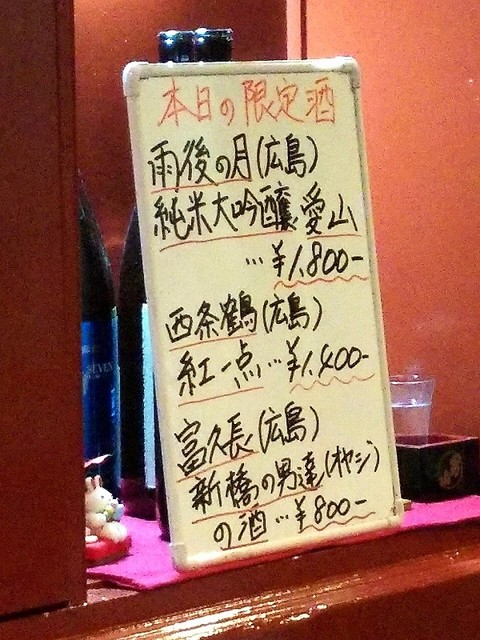 本日の限定酒
雨後の月(広島)
純米大吟醸 愛山
…¥1,800-
西条鶴(広島)
紅一点…¥1,400-
富久長(広島)
新橋の男達(オヤジ)
の酒…¥800-
SEVEN